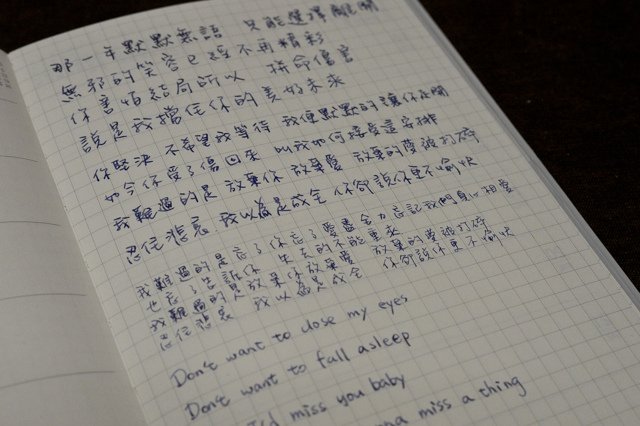 那一年默默無語 只能選擇離開
無邪的笑容已經不再精彩
你害怕結局所以 拼命傷害
說是我擋住你的美好未來
你堅決 不希望我等待 我便默默的讓你走開
如今你受了傷回來 叫我如何接受這安排
我難過的是 放棄你 放棄愛 放棄的夢被打碎
忍住悲哀 我以為是成全 你卻說你更不愉快
我難過的是忘了你 忘了愛 盡全力忘記我們真心相愛
也忘了告訴你 失去的不能重來
我難過的是放棄你 放棄愛 放棄的夢被打碎
忍住悲哀 我以為是成全 你卻說你更不愉快
Don't want to close my eyes
Don't want to fall asleep
I'd miss you baby
miss a thing